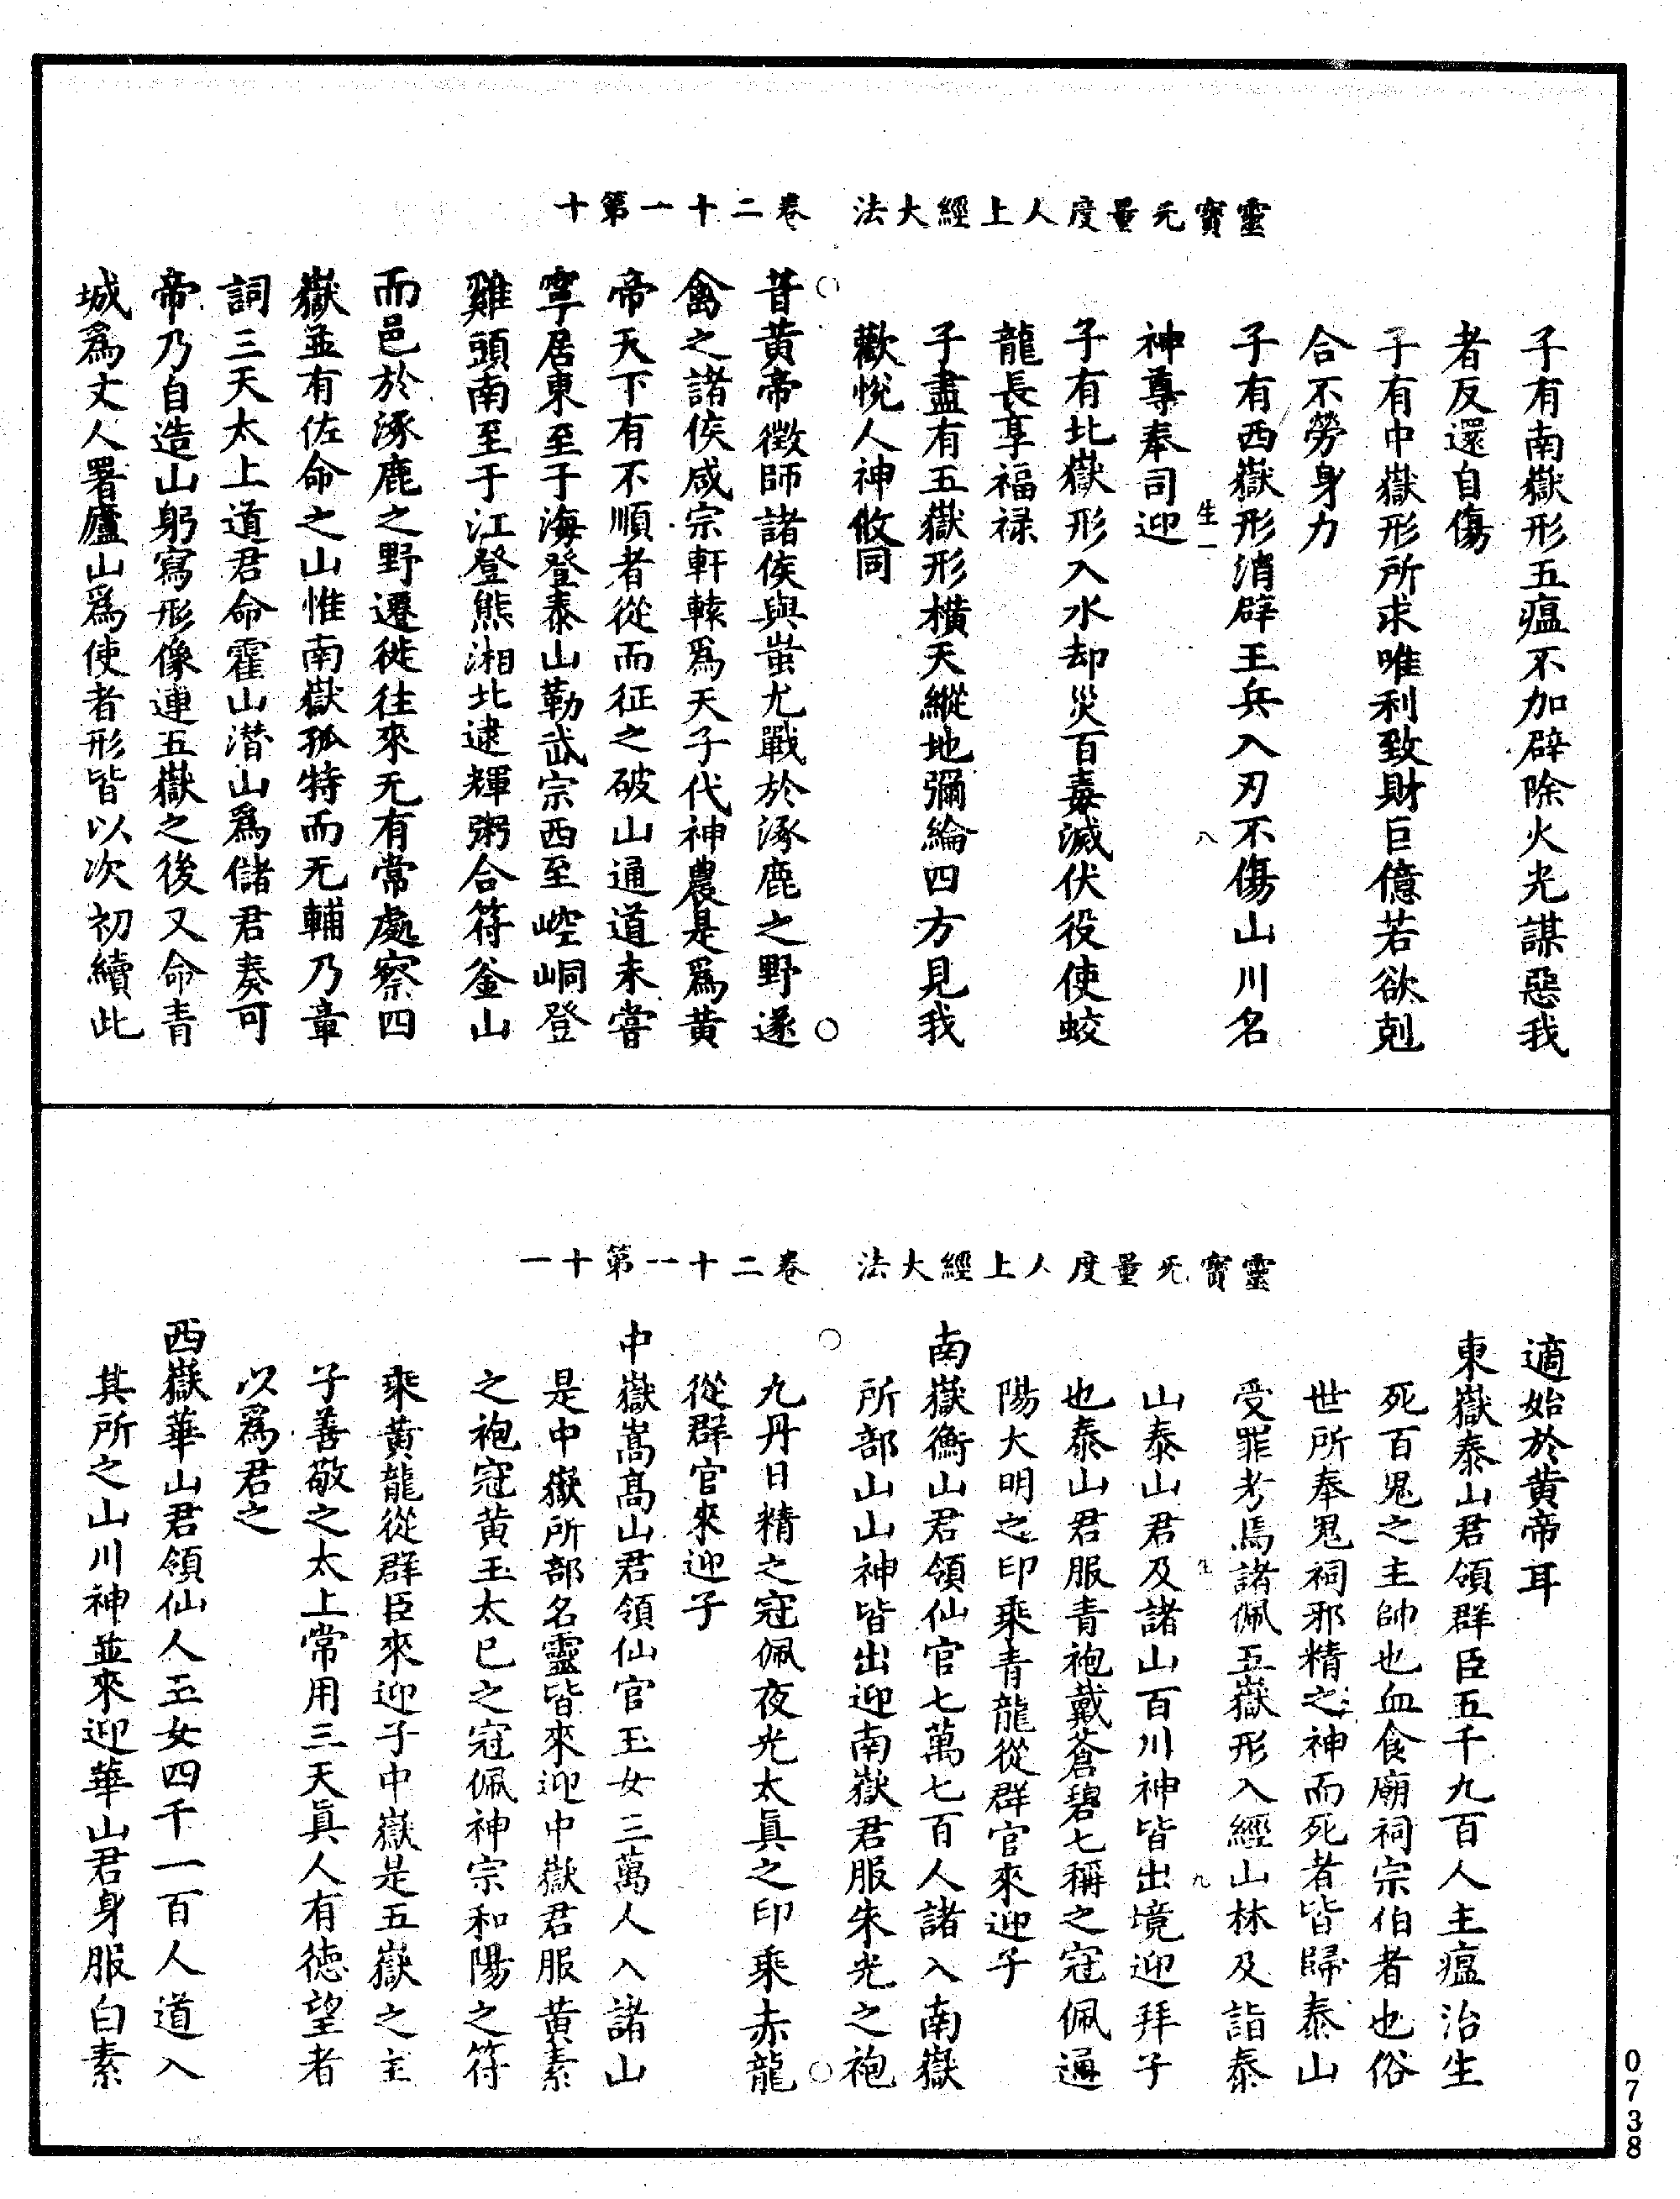 靈寳无量度人上經大法　卷二十一第十
子有南嶽形五瘟不加辟除火光謀惡我
者反還自傷
子有中嶽形所求唯利致財巨億若欲剋
合不勞身力
子有西嶽形消辟王兵入刃不傷山川名
生一　八
神尊奉司迎
子有北嶽形入水却災百毒滅伏役使蛟
龍長享福禄
子盡有五嶽形横天縱地彌綸四方見我
歡悅人神攸同
昔黄帝徵師諸侯與蚩尤戰於涿鹿之野遂
禽之諸侯咸宗軒轅爲天子代神農是爲黄
帝天下有不順者從而征之破山通道未嘗
寧居東至于海登泰山勒武宗西至崆峒登
雞頭南至于江登熊湘北逮輝粥合符釜山
而邑於涿鹿之野遷徙往來无有常處察四
嶽並有佐命之山惟南嶽孤特而无輔乃章
詞三天太上道君命霍山潜山爲儲君奏可
帝乃自造山躬寫形像連五嶽之後又命青
城爲丈人署廬山爲使者形皆以次初續此
靈寳无量度人上經大法　卷二十一第十一
適始於黄帝耳
東嶽泰山君領群臣五千九百人主瘟治生
死百鬼之主帥也血食廟祠宗伯者也俗
世所奉鬼祠邪精之神而死者皆歸泰山
受罪考焉諸佩五嶽形入經山林及詣泰
生二　九
山泰山君及諸山百川神皆出境迎拜子
也泰山君服青袍戴蒼碧七稱之冠佩通
陽大明之印乘青龍從群官來迎子
南嶽衡山君領仙官七萬七百人諸入南嶽
所部山山神皆出迎南嶽君服朱光之袍
九丹日精之冠佩夜光太眞之印乘赤龍
從群官來迎子
中嶽嵩高山君領仙官玉女三萬人入諸山
是中嶽所部名靈皆來迎中嶽君服黄素
之袍冠黄玉太巳之冠佩神宗和陽之符
乘黄龍從群臣來迎子中嶽是五嶽之主
子善敬之太上常用三天眞人有德望者
以爲君之
西嶽華山君領仙人玉女四千一百人道入
其所之山川神並來迎華山君身服白素
0738